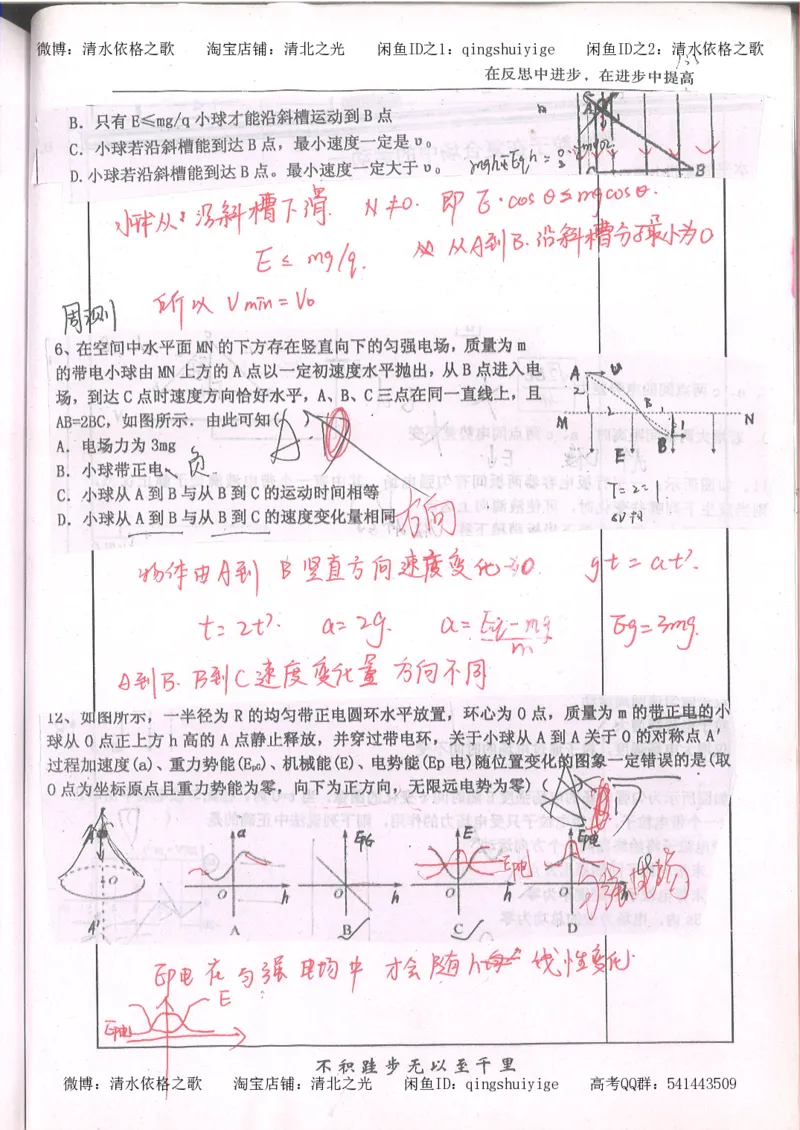 微博：清水依格之歌 淘宝店铺：清北之光 闲鱼ID之1：qingshuiyige 闲鱼ID之2：清水依格之歌
在反思中进步，在进步中提高
B．只有 E≤mg/q 小球才能沿斜槽运动到 B 点
C．小球若沿斜槽能到达 B 点，最小速度一定是 υ。
D.小球若沿斜槽能到达 B 点。最小速度一定大于 υ。
B
沿斜槽下滑. N≠0. 即 E·cosθ≤mgcosθ.
E≤ mg/q. 从A到B.沿斜槽
所以 Vmin = V₀
周测
6、在空间中水平面 MN 的下方存在竖直向下的匀强电场，质量为 m
的带电小球由 MN 上方的 A 点以一定初速度水平抛出，从 B 点进入电
场，到达 C 点时速度方向恰好水平，A、B、C 三点在同一直线上，且
AB=2BC，如图所示．由此可知( A )
A．电场力为 3mg
B．小球带正电 负
C．小球从 A 到 B 与从 B 到 C 的运动时间相等
D．小球从 A 到 B 与从 B 到 C 的速度变化量相同 方向
A
M N
E B
物体由A到 B 竖直方向速度变化 gt = at'.
t = 2t'. a = 2g. a = Eq-mg/m Eq = 3mg.
A到B. B到C速度变化量 方向不同
12、如图所示，一半径为 R 的均匀带正电圆环水平放置，环心为 O 点，质量为 m 的带正电的小
球从 O 点正上方 h 高的 A 点静止释放，并穿过带电环，关于小球从 A 到 A 关于 O 的对称点 A′
过程加速度(a)、重力势能(EpG)、机械能(E)、电势能(Ep 电)随位置变化的图象一定错误的是(取
O 点为坐标原点且重力势能为零，向下为正方向，无限远电势为零)
( )
A O A'
a O h A
EPG O h B
E O h C Ep电
Ep电 O D
匀强电场
Ep电 在匀强 电场中 才会随h 线性变化
E
Ep电
不积跬步无以至千里
微博：清水依格之歌 淘宝店铺：清北之光 闲鱼ID：qingshuiyige 高考QQ群：541443509